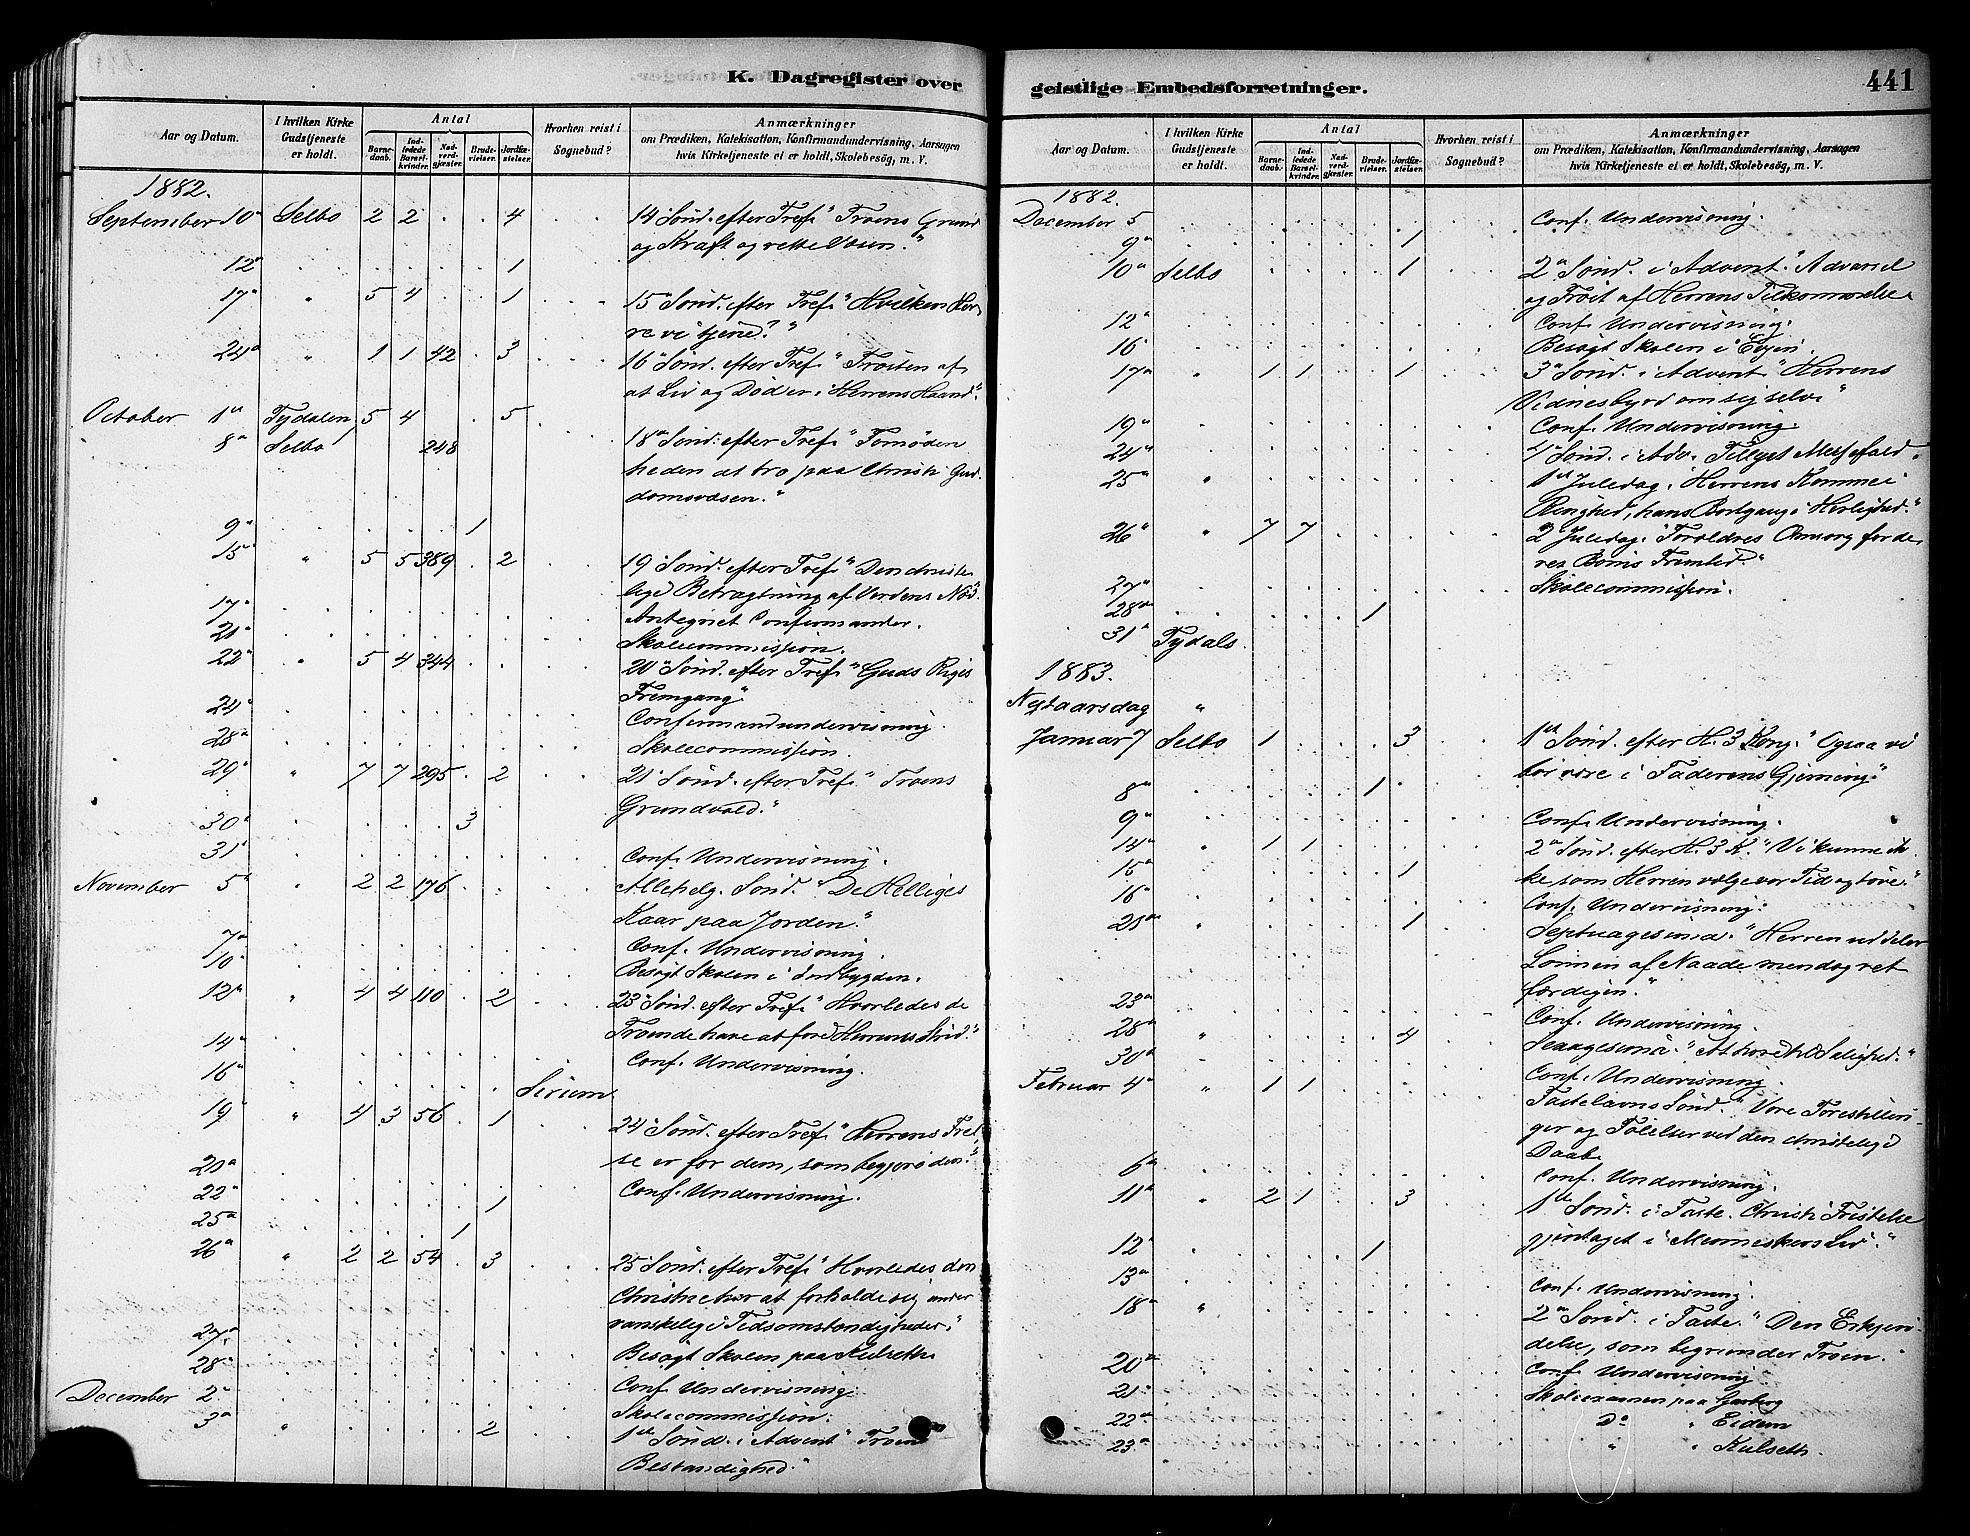 K. Dagregister over
Aar og Datum.
I hvilken Kirke Gudstjeneste er holdt.
Antal
Barnedaab.
Indledede Barselkvinder.
Nadverdgjæster.
Brudevielser.
Jordfæstelser.
Hvorhen reist i Sognebud?
Anmærkninger
om Prædiken, Katekisation, Konfirmandundervisning, Aarsagen
hvis Kirketjeneste ei er holdt, Skolebesög, m. V.
1882.
September 10de Selbo 2 2 . . 4 14de Sönd. efter Tref. "Troens Grund
og Kraft og rette Væsen."
12te 1
17de " 5 4 . . 1 15de Sönd. efter Tref. "Hvilken Her-
re vi tjene?"
24de " 1 1 42 . 3 16de Sönd. efter Tref. "Trösten af
at Liv og Död er i Herrens Haand."
October 1ste Tydalen 5 4 . . 5
8de Selbo 248 18de Sönd. efter Tref. "Fornöden
heden at tro paa Christi Gud-
domsvæsen."
9de 1
15de " 5 5 389 . 2 19de Sönd. efter Tref. "Den christe-
lige Betragtning af Verdens Nöd.
17de Antegnet Confirmander.
21de Skolecommission.
22de " 5 4 344 20de Sönd. efter Tref. "Guds Riges
Fremgang"
24de Confirmandundervisning.
28de Skolecommission.
29de " 7 7 295 . 2 21de Sönd. efter Tref. "Troens
Grundvold."
30te 3
31te Conf. Undervisning.
November 5te " 2 2 176 Allehelg. Sönd. "De Helliges
Kaar paa Jorden."
7de Conf. Undervisning.
10de Besögt Skolen i Indbygden.
12te " 4 4 110 . 2 23de Sönd. efter Tref. "Hvorledes de
Troende have at före Herrens Strid."
14de Conf. Undervisning.
16de
19de " 4 3 56 . 1 24de Sönd. efter Tref. "Herrens Frel-
se er for dem, som begjære den."
20de Conf. Undervisning.
22de 1
25de 1
26de " 2 2 54 . 3 25de Sönd. efter Tref. "Hvorledes den
Christne har at forholde sig under
vanskelige Tidsomstændigheder."
27de Besögt Skolen paa Kulseth
28de Conf. Undervisning
December 2den Skolecommission.
3die " 2 1ste Sönd. i Advent "Troens
Bestandighed"
geistlige Embedsforretninger.
441
Aar og Datum.
I hvilken Kirke Gudstjeneste er holdt.
Antal
Barnedaab.
Indledede Barselkvinder.
Nadverdgjæster.
Brudevielser.
Jordfæstelser.
Hvorhen reist i Sognebud?
Anmærkninger
om Prædiken, Katekisation, Konfirmandundervisning, Aarsagen
hvis Kirketjeneste ei er holdt, Skolebesög, m. V.
1882.
December 5 Conf. Undervisning.
9de 1
10de Selbo 1 2den Sönd. i Advent. "Advarsel
og Tröst af Herrens Tilkommelse
12te Conf. Undervisning.
16 Besögt Skolen i Evjen.
17de " 1 1 . . 1 3die Sönd. i Advent "Herrens
Vidnesbyrd om sig selv"
19de Conf. Undervisning.
24de Sönd. i Adv.
25de " 1ste Juledag. Herrens Komme i
Ringhed, hans Bortgang i Herlighed."
26de " 7 7 2 Juledag. "Forældres Omsorg for de-
res Börns Fremtid."
27de Skolecommission.
28de 1
31te Tydals
1883.
Nytaarsdag "
Januar 7 Selbo 1 . . . 3 1ste Sönd. efter H. 3 Kong. "Ogsaa vi
bör være i Faderens Gjerning"
8de 1
9de Conf. Undervisning.
14de " 1 1 2den Sönd. efter H. 3 K. "Vi kunne ik-
15de 1 ke som Herren vælge vor Tid og töve."
16de Conf. Undervisning.
" 1 Septuagesima. "Herren uddeler
Lönnen af Naade men dog ret
færdigen."
23de Conf. Undervisning.
28de " 4
30te Conf. Undervisning.
Februar 4de " 1 1 Fastelavns Sönd. "Vore Forestillin-
ger og Fölelser ved den christelige
Daab
6te Conf. Undervisning.
11te " 2 1 . . 3 1ste Sönd. i Faste. Christi Fristelse
gjentaget i Menneskens Liv."
12te 1
13de Conf. Undervisning.
18de " 2den Sönd. i Faste. "Den Erkjen-
delse, som begrunder Troen."
20de Conf. Undervisning
21de Skoleexamen paa Garberg
22de Do " Eidem
23de " " Kulseth.